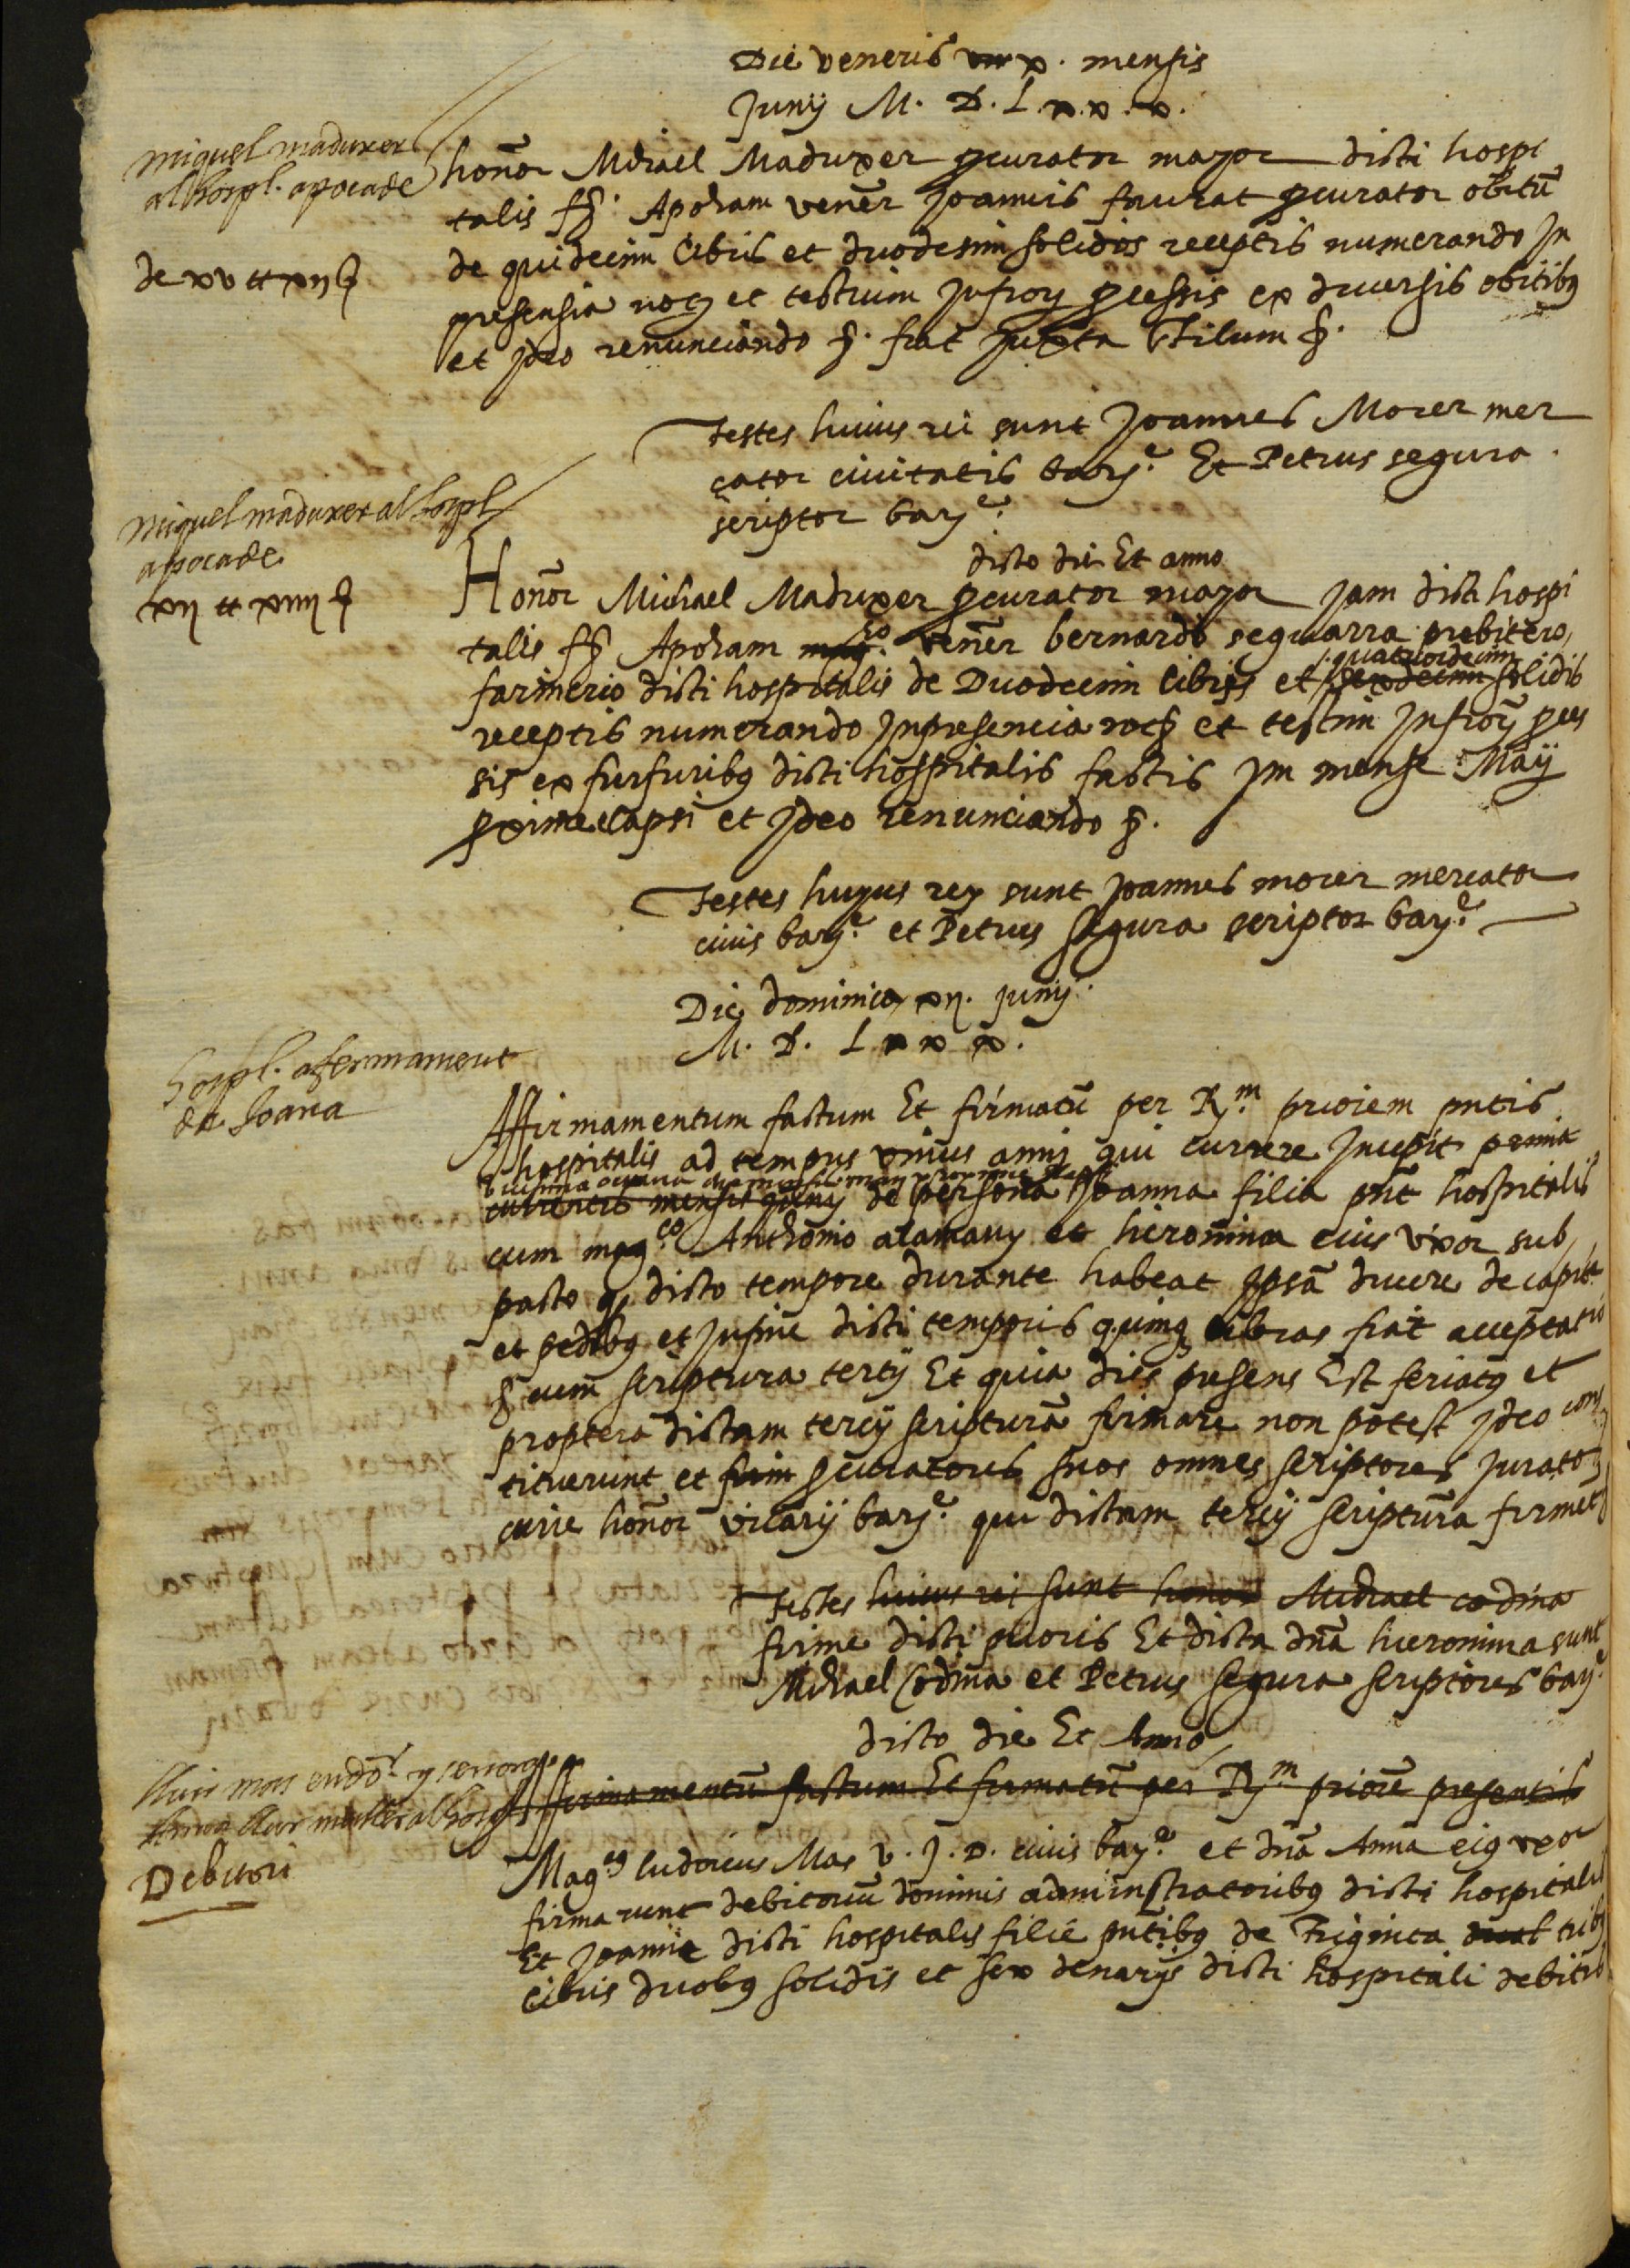 Die veneris viii x. mensis
Junÿ M. D. L.xx.x.
miquel maduxer
al hospl. apoca de
de xv tt xij ſ
honor Michael Maduxer procurator major dicti hospi
talis f§. Apocham vener Joannis faurat procurator obitũ
de quidecim libris et duodesim solidos receptis numerando Jn
presensia not§ et testium Jnfro𝑟 processis ex diversis obitibꝫ
et Jdeo renunciando §. fiat Juxta stilum §.
Testes huius rei sunt Joannes Morer mer
cator civitatis barne Et Petrus segura
scriptor barne
miquel maduxer al hospl
apoca de
xij tt xiiij ſ
dicto die Et anno
Honor Michael Maduxer procurator major jam dicti hospi
talis f§ Apocham magco vener bernardo seguarra prebitero,
farinerio dicti hospitalis de Duodecim libris et sexdecim quatuordecim solidis
receptis numerando Jnpresencia not§ et testim Jnfro𝑟 proces
sis ex furfuribꝫ dicti hospitalis factis Jn mense Maÿ
proxime elapsi et Jdeo renunciando §.
Testes hujus rey sunt Joannes morer mercator
civis barne et Petrus segura scriptor barne
Die dominica xij. junÿ.
M. D. L x x x.
hospl. afermament
de Joana
Affirmamentum factum Et firmatũ per Rm. priorem pntis
hospitalis ad tempus vnius annj qui currere Jncepit primit
vicesima octava die mensis may proxime elapsi
currentis mensis junÿ de persona Joanna filia pnt hospitalis
cum magco Anthonio alamany et hieronima eius vxor sub
pacto q dicto tempore durante habeat Jpsã ducere de capite
et pedibꝫ et Jnfine dicti temporis quinqꝫ libras fiat acceptatio
§ cum scriptura tercÿ Et quia dies presens Est feriatꝫ et
propterea dictam tercÿ scripturã firmare non potest Jdeo cons
tituerunt et firm procuratores suos omnes scriptores jurato𝑟
curie honor vicarÿ barne qui dictam tercÿ scriptura firment
Testes huius rei sunt honor Michael codina
firme dicti prioris Et dicta dna hieronima sunt
Michael Codina et Petrus segura scriptores barne
dicto die Et Anno
lluis mas en dor. y senora
Anna sua muller al hospl
Debitori
Affirmamentũ factum Et firmatũ per Rm priorẽ presentis
Magcꝫ ludovicus Mas v. j. D. civis barne et dna Anna eiꝫ vxor
firmarunt debitoriũ dominis administratoribꝫ dicti hospitalis
Et Joanne dicti hospitalis filie pntibꝫ de Triginta duab tribꝫ
libris duobꝫ solidis et sex denarÿs dicti hospitali debitis